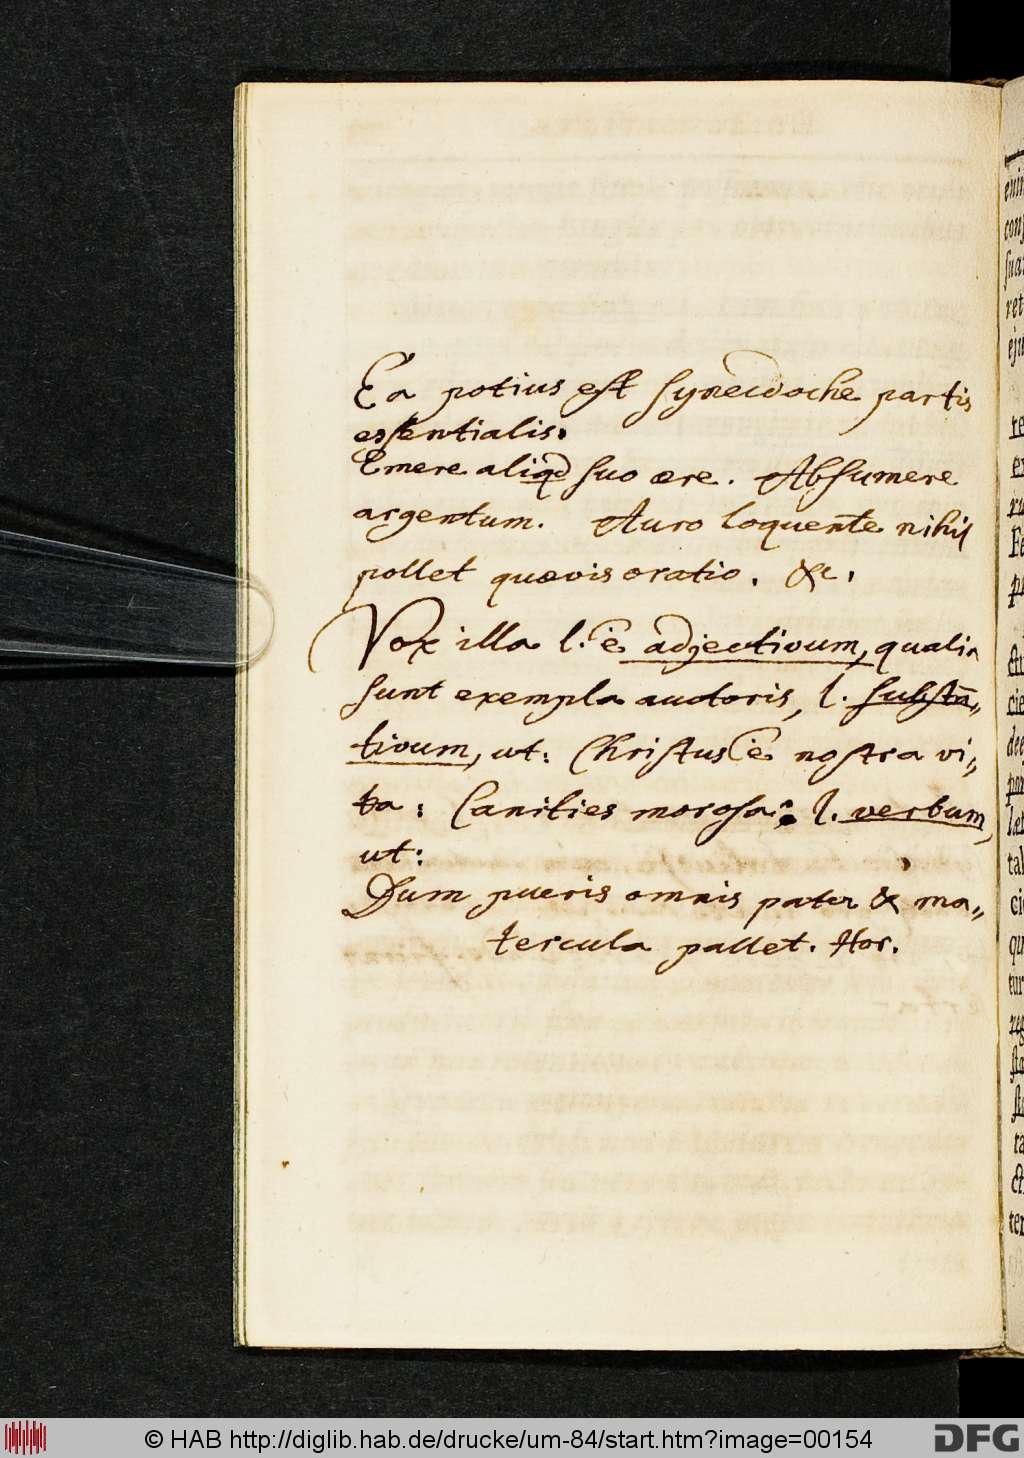 Ea potius est synecdoche partis
essentialis.
Emere aliqd suo ære. Absumere
argentum. Auro loquente nihil
pollet quævis oratio. &c.
Vox illa l. ē adjectivum, qualia
sunt exempla auctoris, l. substā-
tivum, ut: Christus ē nostra vi-
ta: Canities morosa: l. verbum,
ut:
Dum pueris omnis pater & ma-
tercula pallet. Hor.
© HAB http://diglib.hab.de/drucke/um-84/start.htm?image=00154
DFG